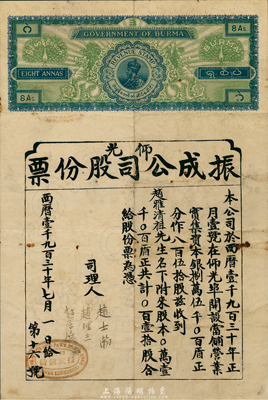 GOVERNMENT OF BURMA
8 As
8 As
REVENUE STAMP
EIGHT ANNAS
8 As
仰光
振成公司股份票
本公司於西曆壹千九百三十年正
月壹號在仰光埠開設當舖營業
實集資本銀捌萬伍千0百盾正
分作八百伍拾股茲收到
趙雅清祖先生名下附來股本0萬壹
千0百盾正共計0百壹拾股合
給股份票為憑
司理人
西曆壹千九百三十年七月一日給
第十六號
上海陽明拍賣